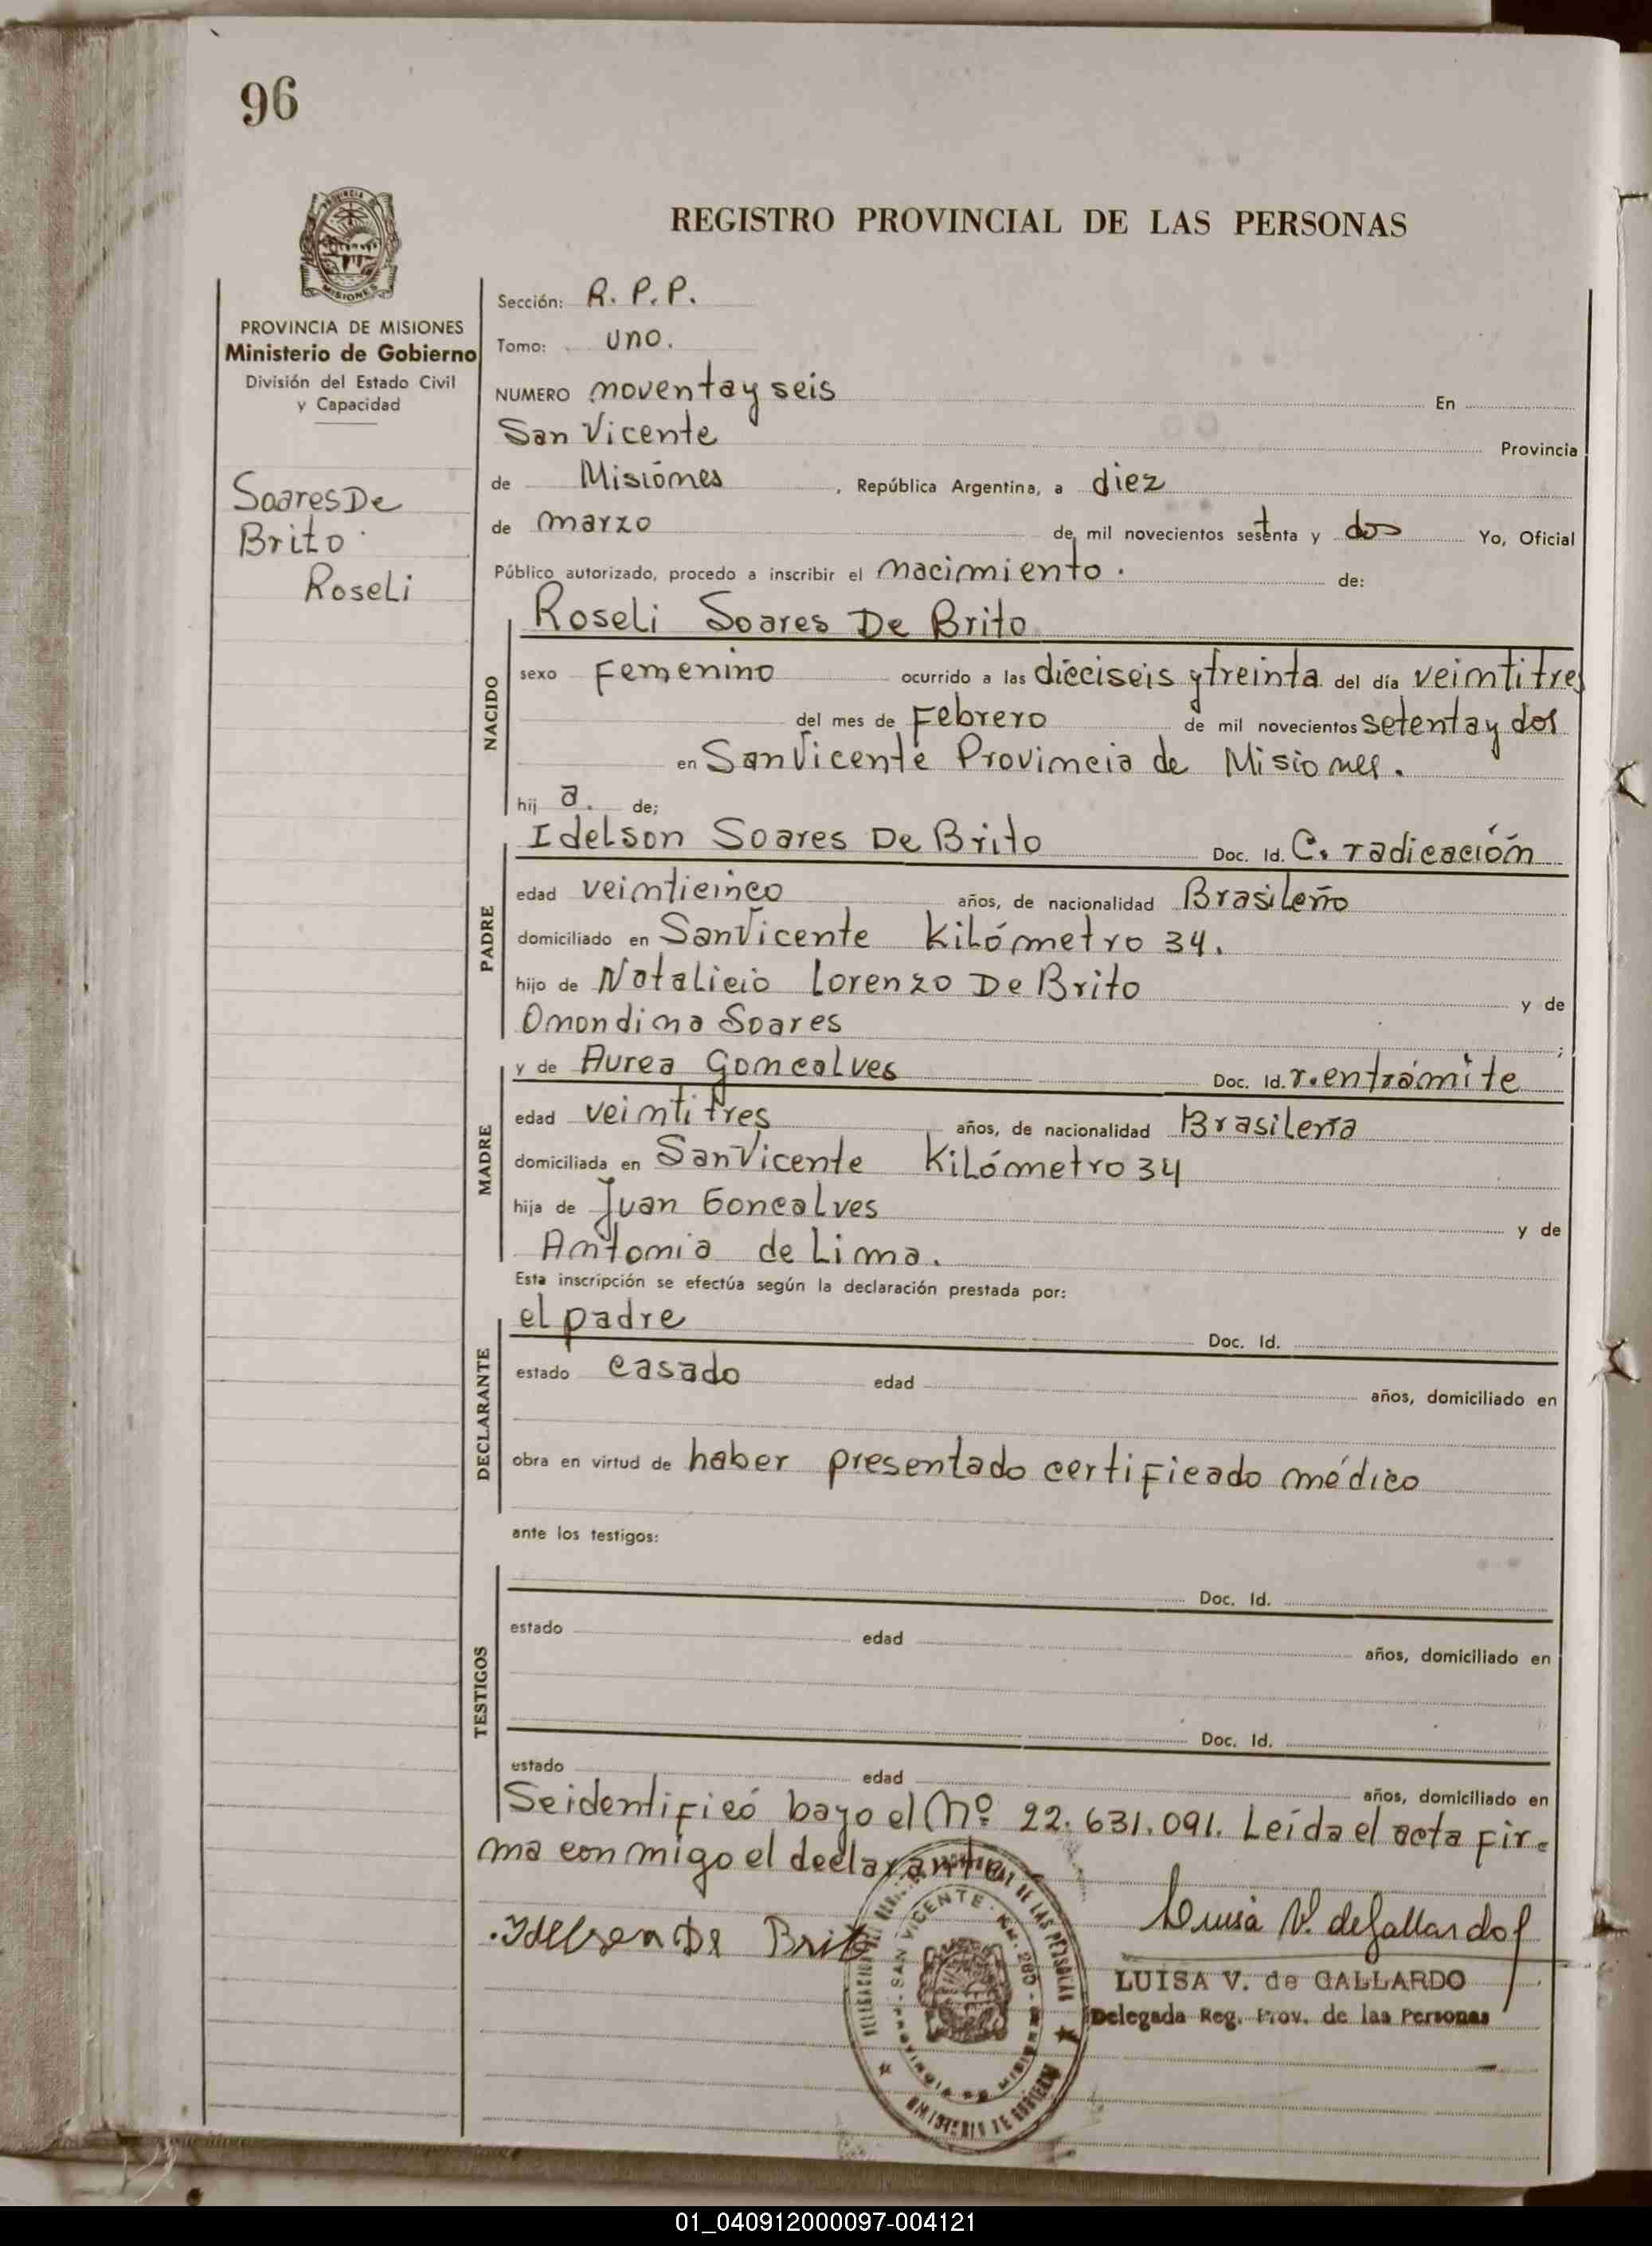 96
PROVINCIA DE MISIONES
Ministerio de Gobierno
División del Estado Civil
y Capacidad
Soares De
Brito
Roseli
REGISTRO PROVINCIAL DE LAS PERSONAS
Sección: R. P. P.
Tomo: uno.
NUMERO noventa y seis En
San Vicente Provincia
de Misiónes, República Argentina, a diez
de marzo de mil novecientos sesenta y dos Yo, Oficial
Público autorizado, procedo a inscribir el nacimiento. de:
NACIDO
Roseli Soares De Brito
sexo Femenino ocurrido a las dieciseis y treinta del día veintitres
del mes de Febrero de mil novecientos setenta y dos
en San Vicente Provincia de Misiones.
hij a. de;
PADRE
Idelson Soares De Brito Doc. Id. C. radicación
edad veinticinco años, de nacionalidad Brasileño
domiciliado en San Vicente Kilómetro 34.
hijo de Natalicio Lorenzo De Brito y de
Onondina Soares ;
MADRE
y de Aurea Goncalves Doc. Id. r. en trámite
edad veintitres años, de nacionalidad Brasileña
domiciliada en San Vicente Kilómetro 34
hija de Juan Goncalves y de
Antonia de Lima.
Esta inscripción se efectúa según la declaración prestada por:
DECLARANTE
el padre Doc. Id.
estado casado edad años, domiciliado en
obra en virtud de haber presentado certificado médico
ante los testigos:
TESTIGOS
Doc. Id.
estado edad años, domiciliado en
Doc. Id.
estado edad años, domiciliado en
Se identificó bajo el Nº 22.631.091. Leída el acta fir-
ma conmigo el declarante
Idelson De Brito
Luisa V. de Gallardo
LUISA V. de GALLARDO
Delegada Reg. Prov. de las Personas
SAN VICENTE
DE LAS PERSONAS
MINISTERIO DE GOBIERNO
01_040912000097-004121